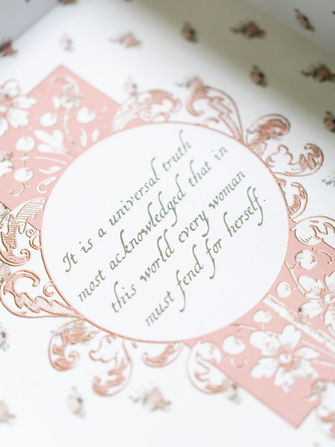 It is a universal truth
most acknowledged that in
this world every woman
must fend for herself.